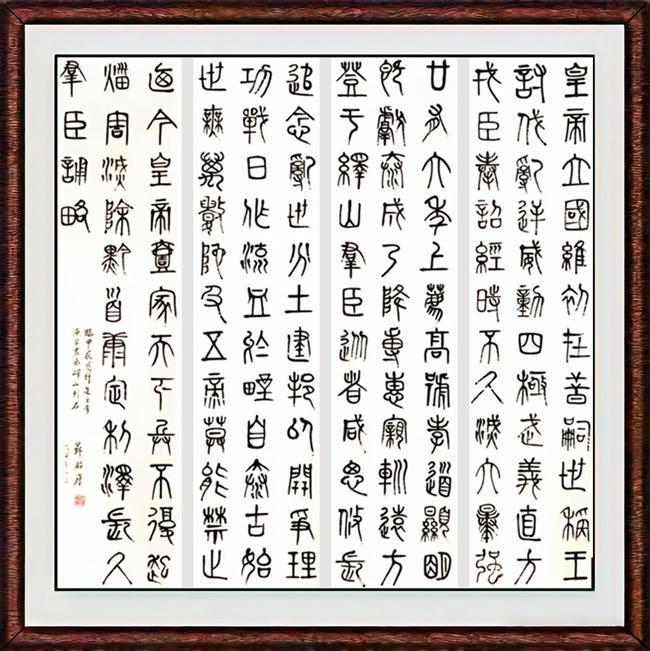 皇帝立國維初在昔嗣世稱王
討伐亂逆威動四極武義直方
戎臣奉詔經時不久滅六暴強
廿有六年上薦高號孝道顯明
既獻泰成乃降專惠親巡遠方
登于繹山羣臣從者咸思攸長
追念亂世分土建邦以開爭理
功戰日作流血於野自泰古始
世無萬數陀及五帝莫能禁止
迺今皇帝壹家天下兵不復起
災害滅除黔首康定利澤長久
羣臣誦略